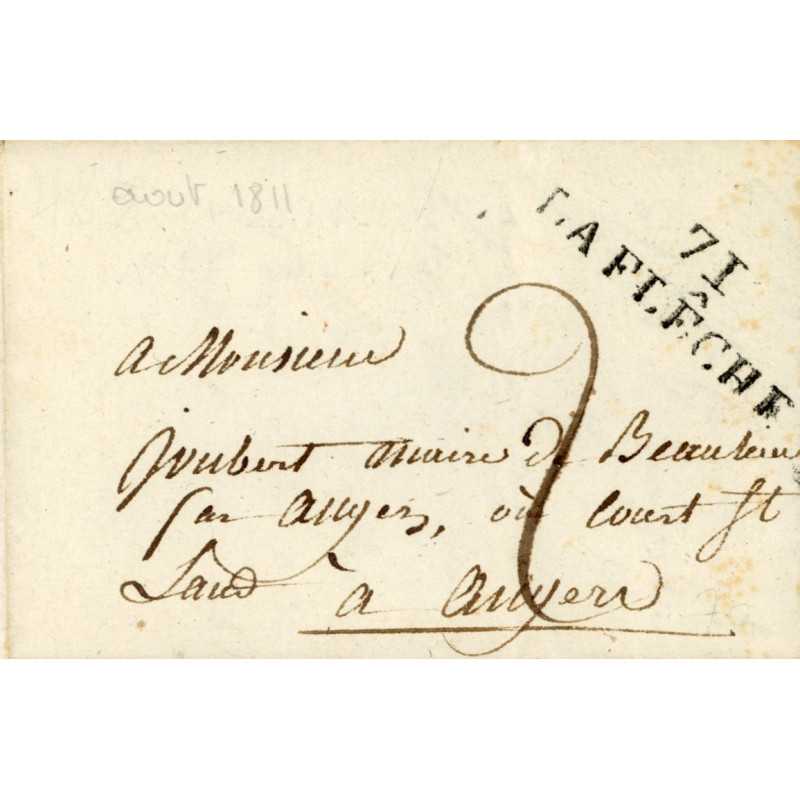 aout 1811
71
LA FLÊCHE
2
a Monsieur
Joubert maire de Beaulieu
par angers, où court St
Laud à angers